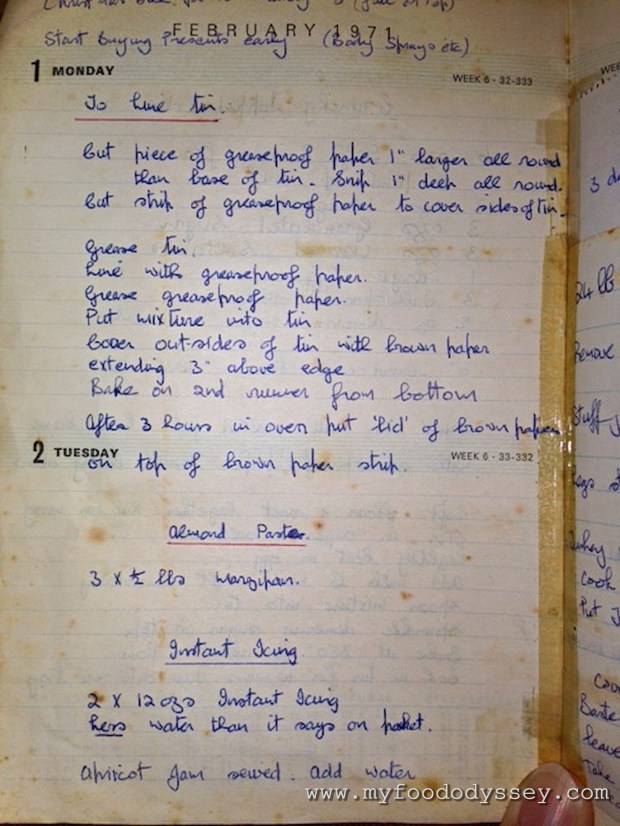 FEBRUARY 1971
Start Buying Presents early (Body Sprays etc)
1 MONDAY
WEEK 6 - 32-333
To Line tin.
Cut piece of greaseproof paper 1" larger all round
than base of tin. Snip 1" deep all round.
Cut strip of greaseproof paper to cover sides of tin.
Grease tin
Line with greaseproof paper.
Grease greaseproof paper.
Put mixture into tin
Cover out-sides of tin with brown paper
extending 3" above edge
Bake on 2nd runner from bottom
After 3 hours in oven put 'lid' of brown paper
2 TUESDAY
WEEK 6 - 33-332
on top of brown paper strip.
Almond Paste
3 x ½ lbs marzipan.
Instant Icing
2 X 12 ozs Instant Icing
Less water than it says on packet.
Apricot Jam sieved. Add water
Remove
Stuff
Legs
cook
Put
leave
take
www.myfoododyssey.com